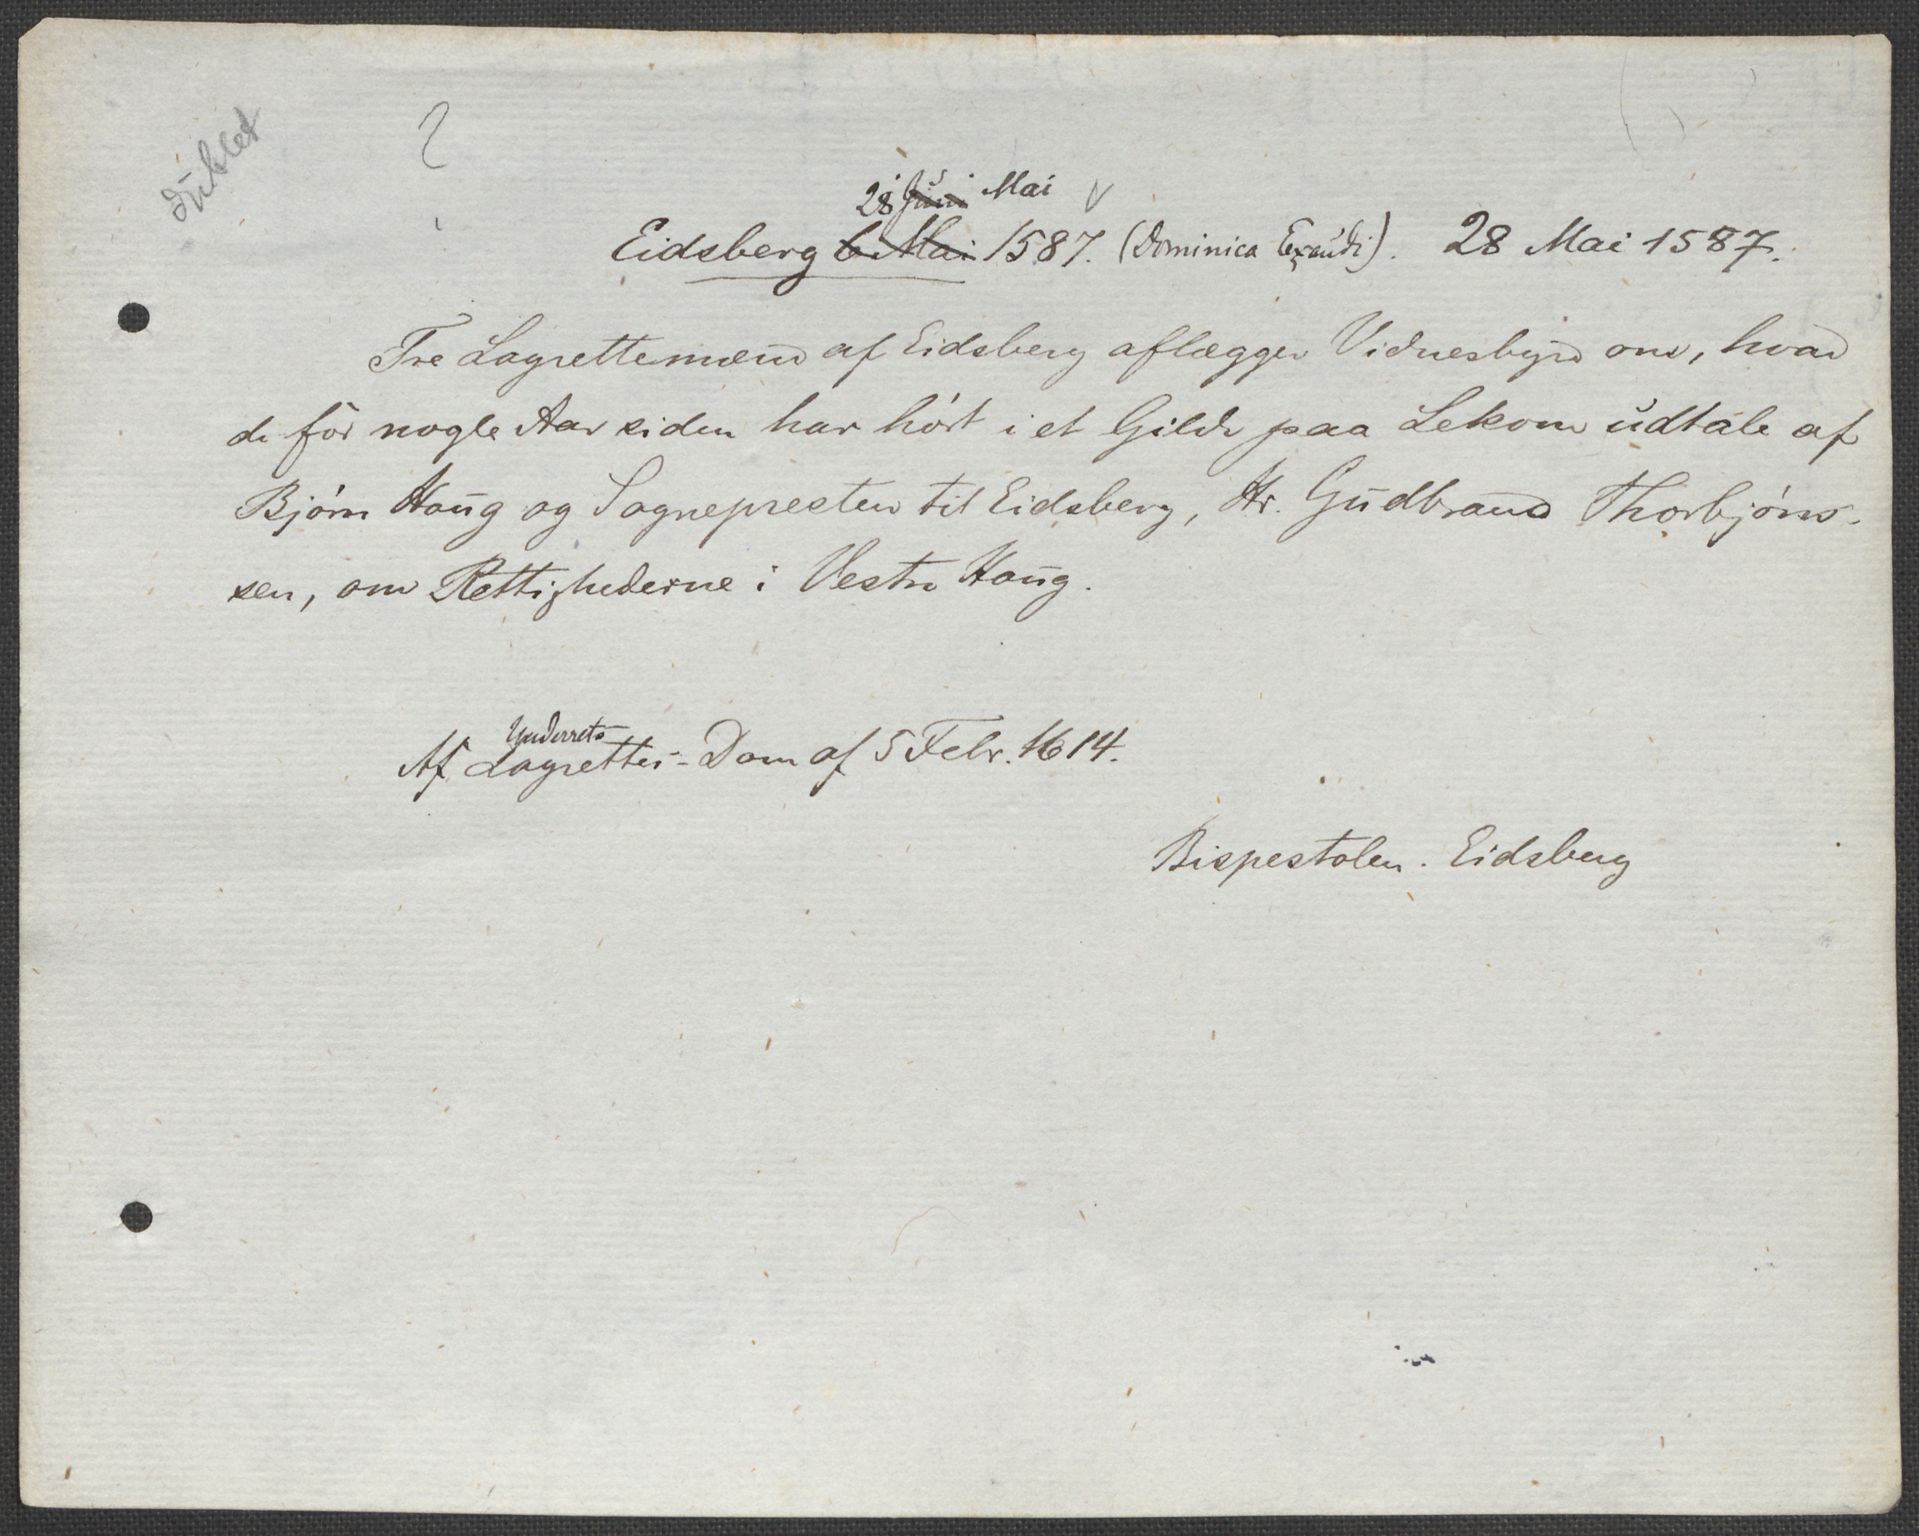 dublet
28 Juni Mai
Eidsberg 6 Mai 1587. (Dominica Exaudi). 28 Mai 1587.
Tre Lagrettemænd af Eidsberg aflægger Vidnesbyrd om, hvad
de for nogle Aar siden har hört i et Gilde paa Lekom udtale af
Björn Haug og Sognepresten til Eidsberg, Hr. Gudbrand Thorbjöns-
sen, om Rettighederne i Vestre Haug.
Underrets
Af Lagrettes-Dom af 5 Febr. 1614.
Bispestolen. Eidsberg